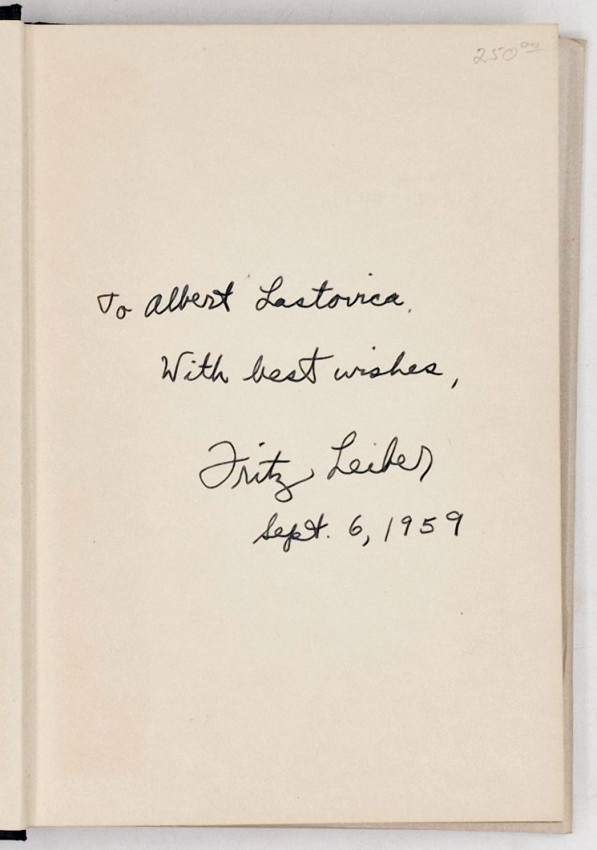 250.00
To Albert Lastovica,
With best wishes,
Fritz Leiber
Sept. 6, 1959